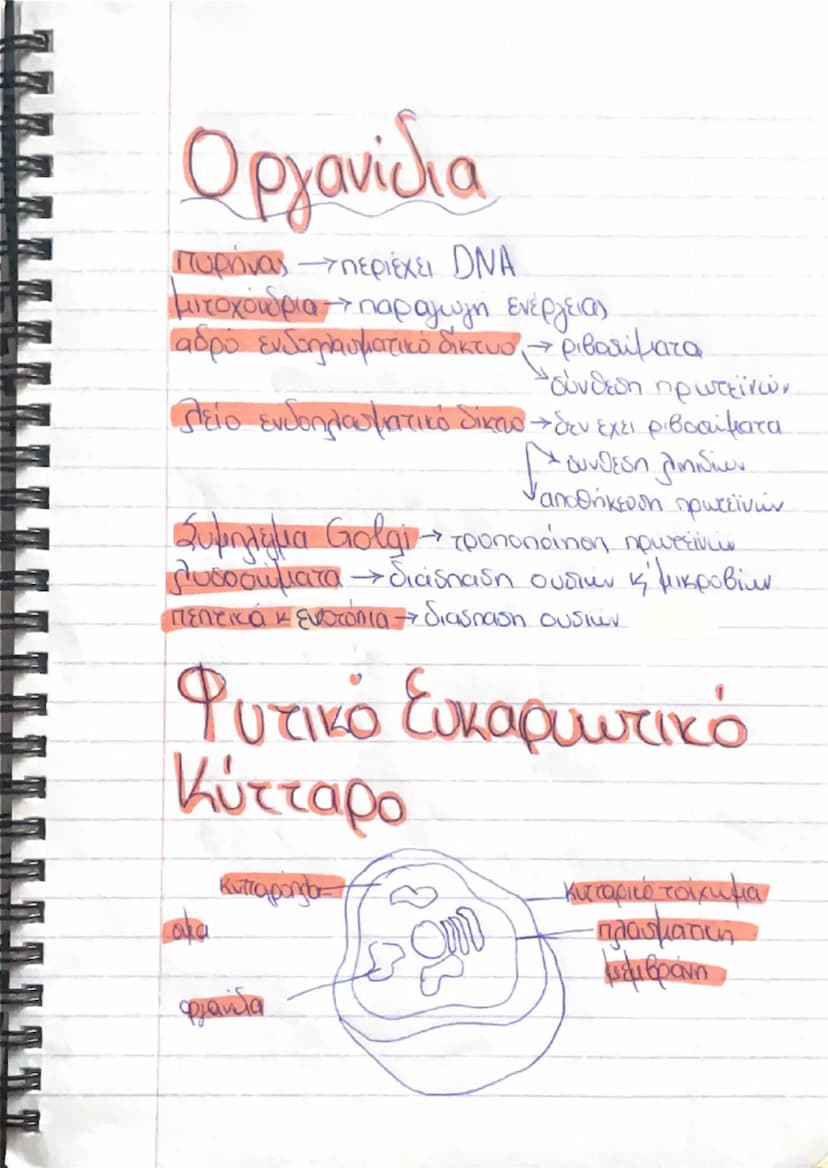 Οργανίδια
πυρήνας → περιέχει DNA
μιτοχόνδρια → παραγωγή ενέργειας
αδρό ενδοπλασματικό δίκτυο → ριβοσώματα
σύνθεση πρωτεϊνών
λείο ενδοπλασματικό δίκτυο → δεν έχει ριβοσώματα
σύνθεση λιπιδίων
αποθήκευση πρωτεϊνών
Σύμπλεγμα Golgi → τροποποίηση πρωτεϊνών
λυσοσώματα → διάσπαση ουσιών κ' μικροβίων
πεπτικά κενοτόπια → διασπαση ουσιών
Φυτικό Ευκαρυωτικό
Κύτταρο
κυτταρόπλα=
σμα
οργανίδια
κυτταρικό τοίχωμα
πλασματική
μεμβράνη